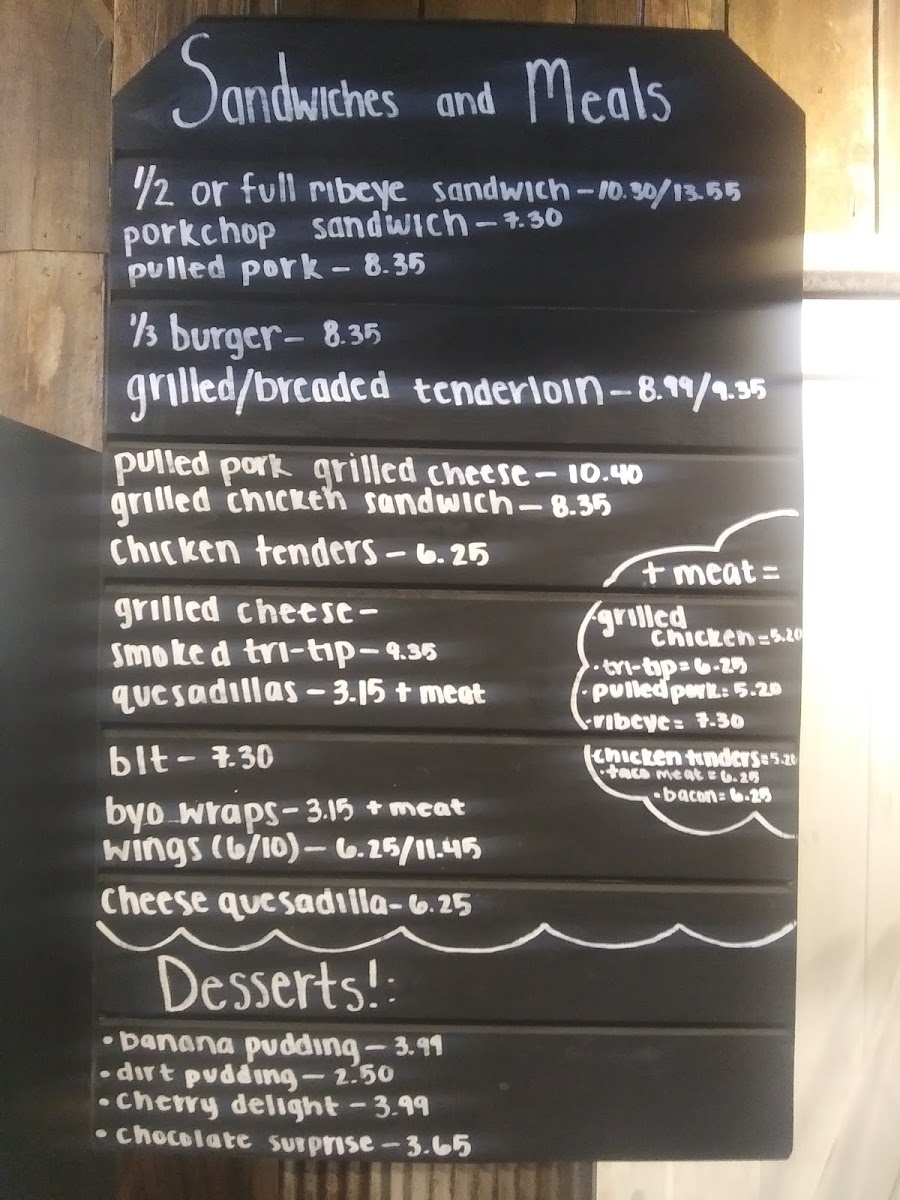 Sandwiches and Meals
1/2 or full ribeye sandwich - 10.30/13.55
porkchop sandwich - 7.30
pulled pork - 8.35
1/3 burger - 8.35
grilled/breaded tenderloin - 8.99/9.35
pulled pork grilled cheese - 10.40
grilled chicken sandwich - 8.35
chicken tenders - 6.25
grilled cheese -
smoked tri-tip - 9.35
quesadillas - 3.15 + meat
blt - 7.30
byo wraps - 3.15 + meat
wings (6/10) - 6.25/11.45
cheese quesadilla - 6.25
+ meat =
·grilled
chicken = 5.20
·tri-tip = 6.25
·pulled pork = 5.20
·ribeye = 7.30
chicken tenders = 5.20
·taco meat = 6.25
·bacon = 6.25
Desserts!:
• banana pudding - 3.99
• dirt pudding - 2.50
• cherry delight - 3.99
• chocolate surprise - 3.65